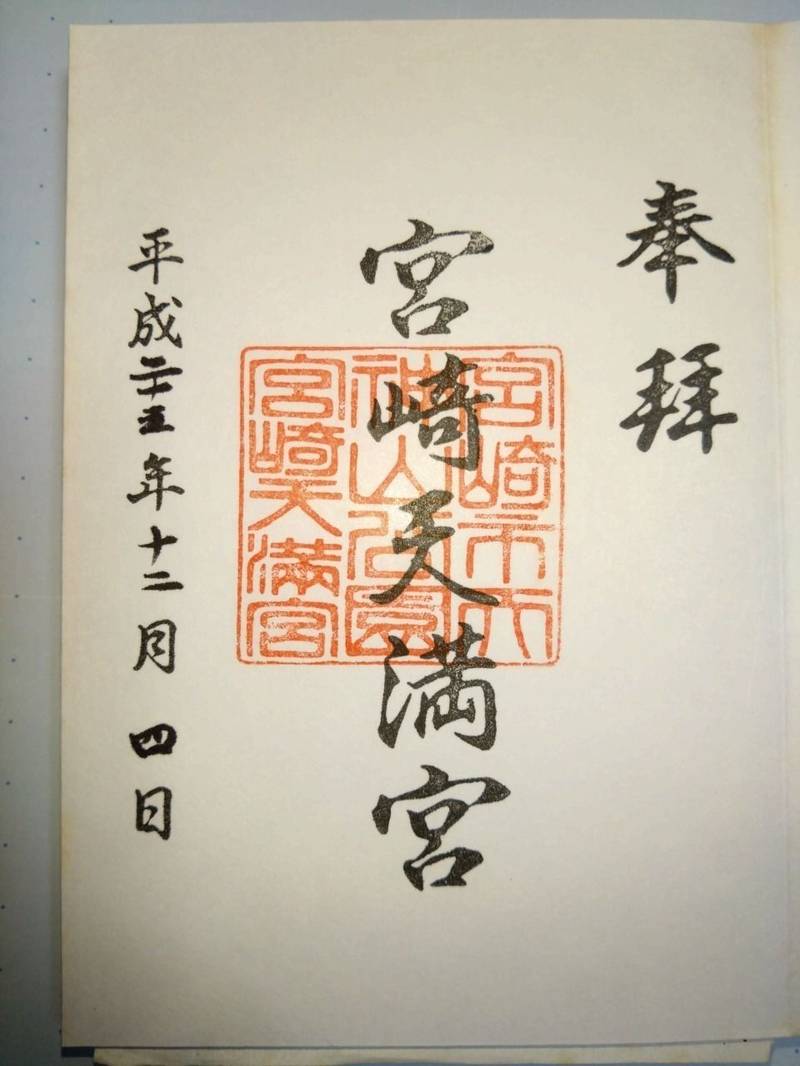 奉拝
宮崎天満宮
宮崎市天
神山公園
宮崎天満宮
平成二十五年十二月四日